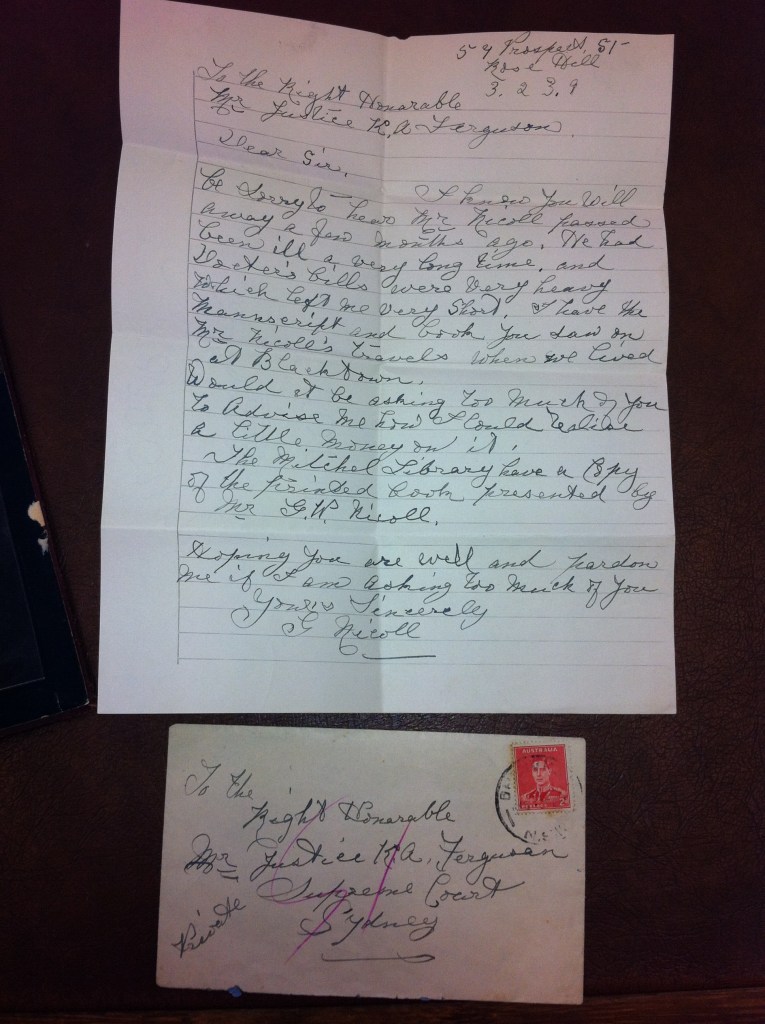 59 Prospect, St-
Rose Hill
3. 2 3. 9
To the Right Honarable
Mr Justice K. A Ferguson.
Dear Sir.
I know you will
be Sorry to hear Mr Nicoll passed
away a few months ago. He had
been ill a very long time. and
Docter's bills were very heavy
which left me very Short. I have the
Manuscript and book you saw on
Mr Nicoll's Travels when we lived
at Blacktown.
Would it be asking too much of you
to Advise me how I Could realise
a little money on it.
The Mitchel Library have a Copy
of the printed book presented by
Mr G. W. Nicoll.
Hoping you are well and pardon
me if I am asking too much of you
Yours Sincerely
G Nicoll
AUSTRALIA
2d
To the
Right Honarable
Mr Justice K. A. Ferguson
Supreme Court
Sydney
Private